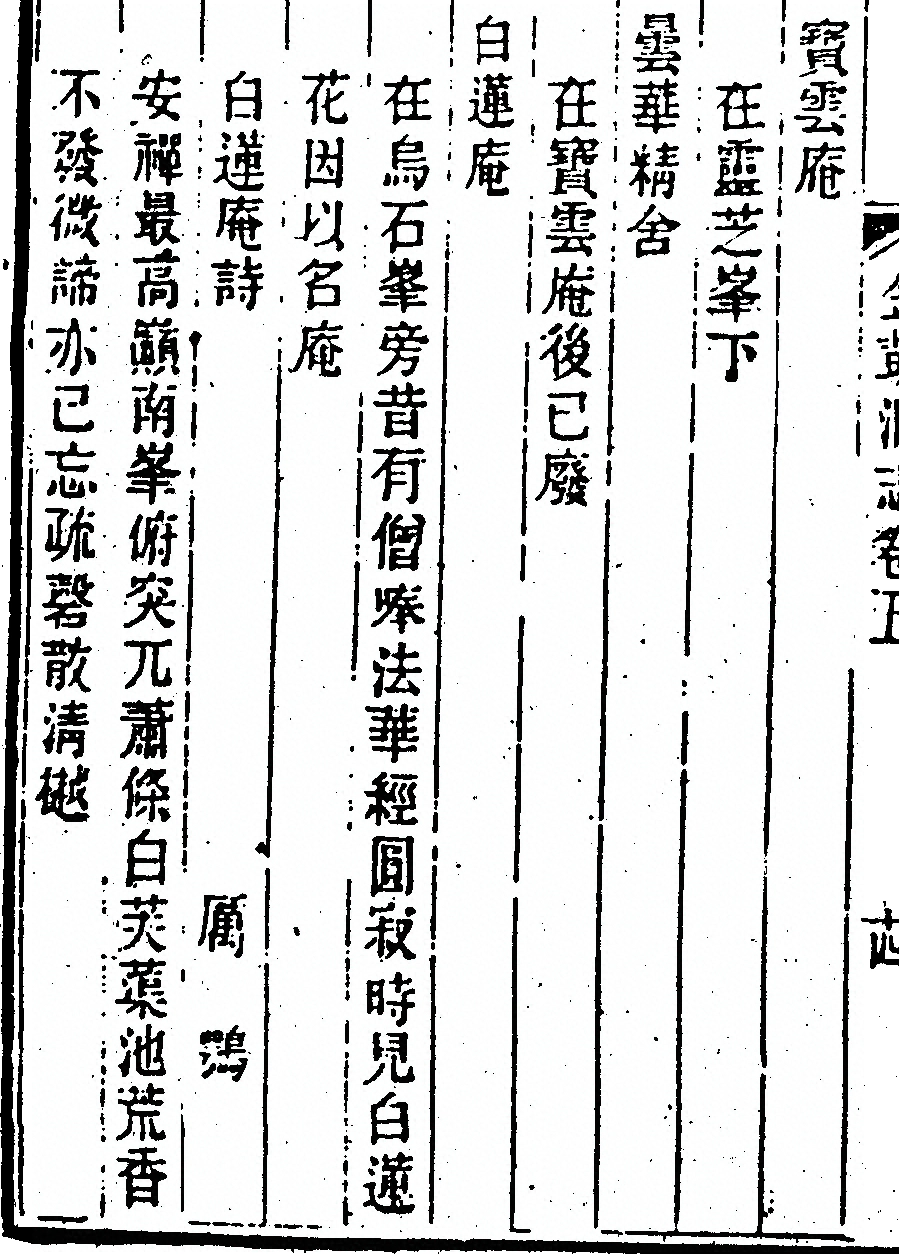 金鼓洞志卷五 十四
寶雲庵
在靈芝峯下
曇華精舍
在寶雲庵後已廢
白蓮庵
在烏石峯旁昔有僧唪法華經圓寂時見白蓮
花因以名庵
白蓮庵詩 厲鶚
安禪最高巔南峯俯突兀蕭條白芙蕖池荒香
不發微諦亦已忘疏磬散清樾